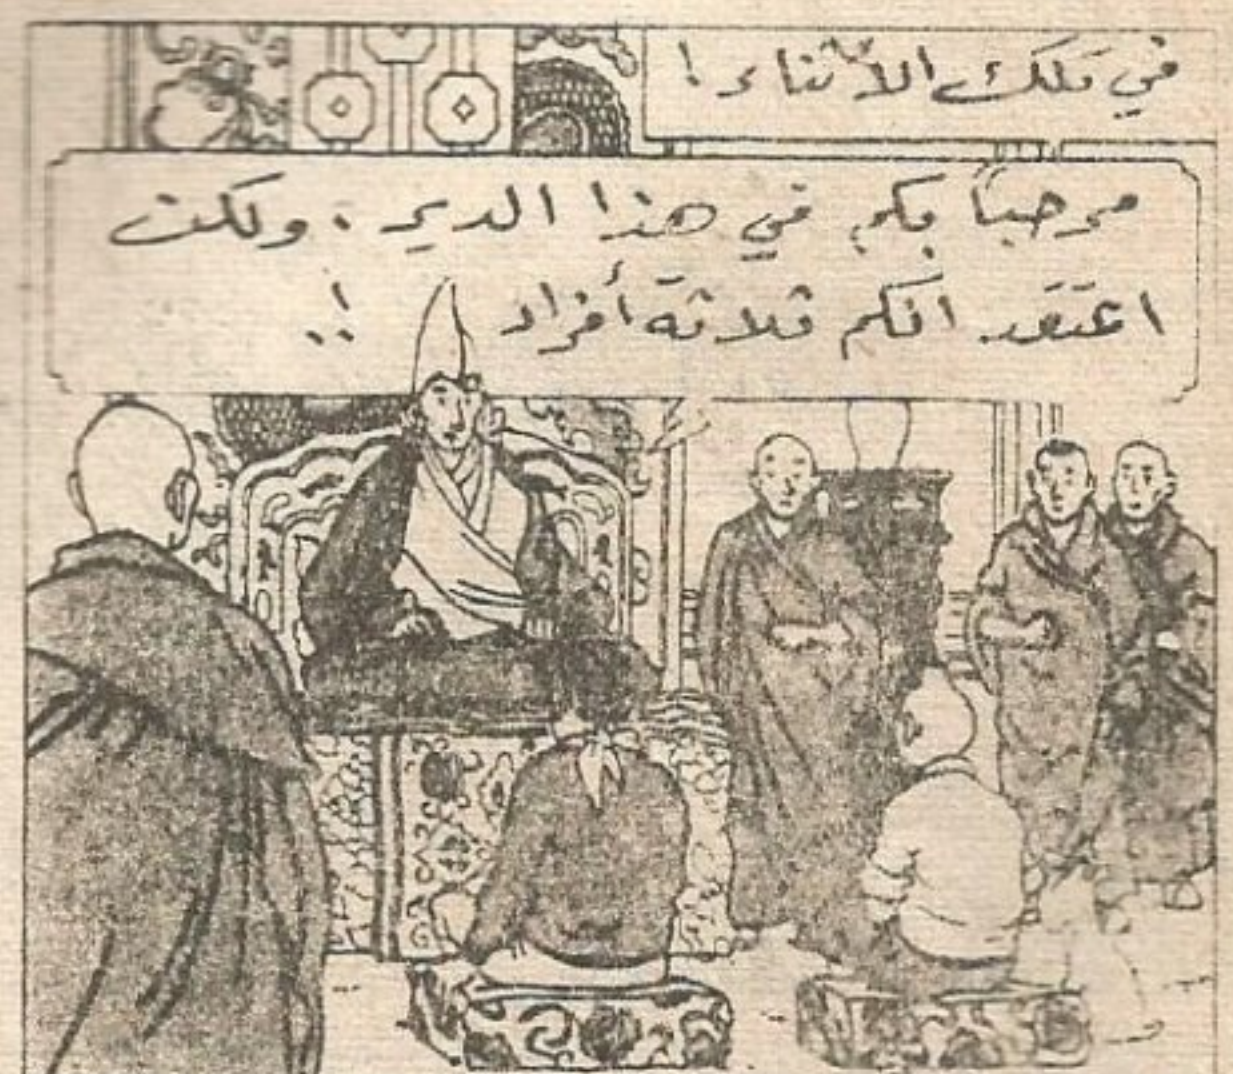 في تلك الأثناء !
مرحباً بكم في هذا الدير . ولكن
اعتقد انكم ثلاثة أفراد !..